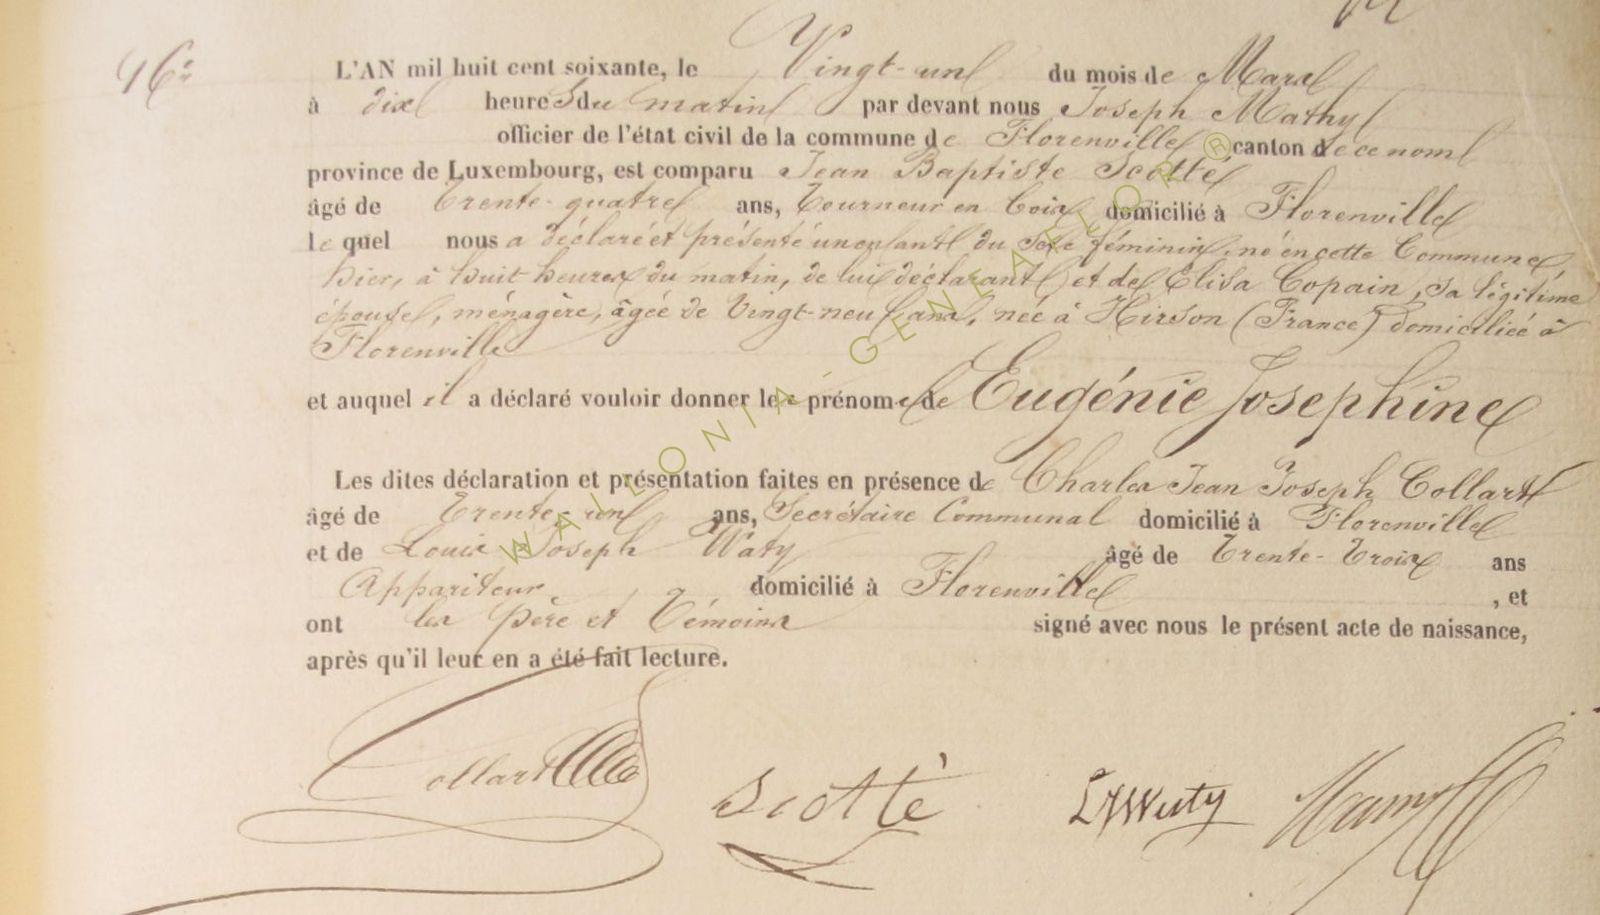 46e
L'AN mil huit cent soixante, le Vingt-un du mois de Mars
à dix heures du matin par devant nous Joseph Mathy
officier de l'état civil de la commune de Florenville canton de ce nom
province de Luxembourg, est comparu Jean Baptiste Scotté
âgé de Trente-quatre ans, Tourneur en bois domicilié à Florenville
lequel nous a déclaré et présenté un enfant du sexe féminin, né en cette Commune,
hier, à huit heures du matin, de lui déclarant et de Elisa Copain, sa légitime
épouse, ménagère, âgée de Vingt-neuf ans, née à Hirson (France) domiciliée à
Florenville
et auquel il a déclaré vouloir donner les prénoms de Eugénie Josephine
Les dites déclaration et présentation faites en présence de Charles Jean Joseph Collart
âgé de Trente-un ans, Secrétaire Communal domicilié à Florenville
et de Louis Joseph Waty âgé de Trente-Trois ans
Appariteur, domicilié à Florenville, et
ont les Père et Témoins signé avec nous le présent acte de naissance,
après qu'il leur en a été fait lecture.
Collart Scotté LJWaty
WALLONIA-GENEAFLOR ®